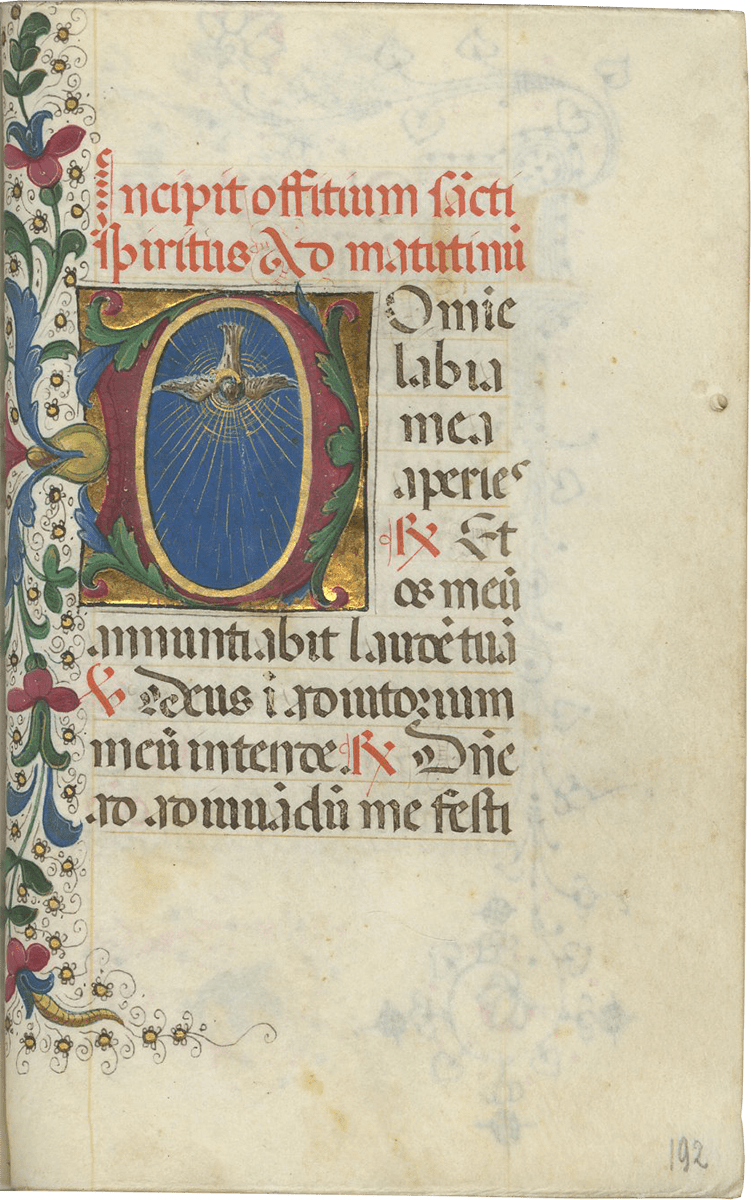 Incipit offitium sācti
spiritus Ad matutinū
Domie
labia
mea
aperies
℟ Et
os meū
annuntiabit laudē tuā
℣ deus ī adiutorium
meū intende. ℟ Dn̄e
ad adiuuādū me festi
192